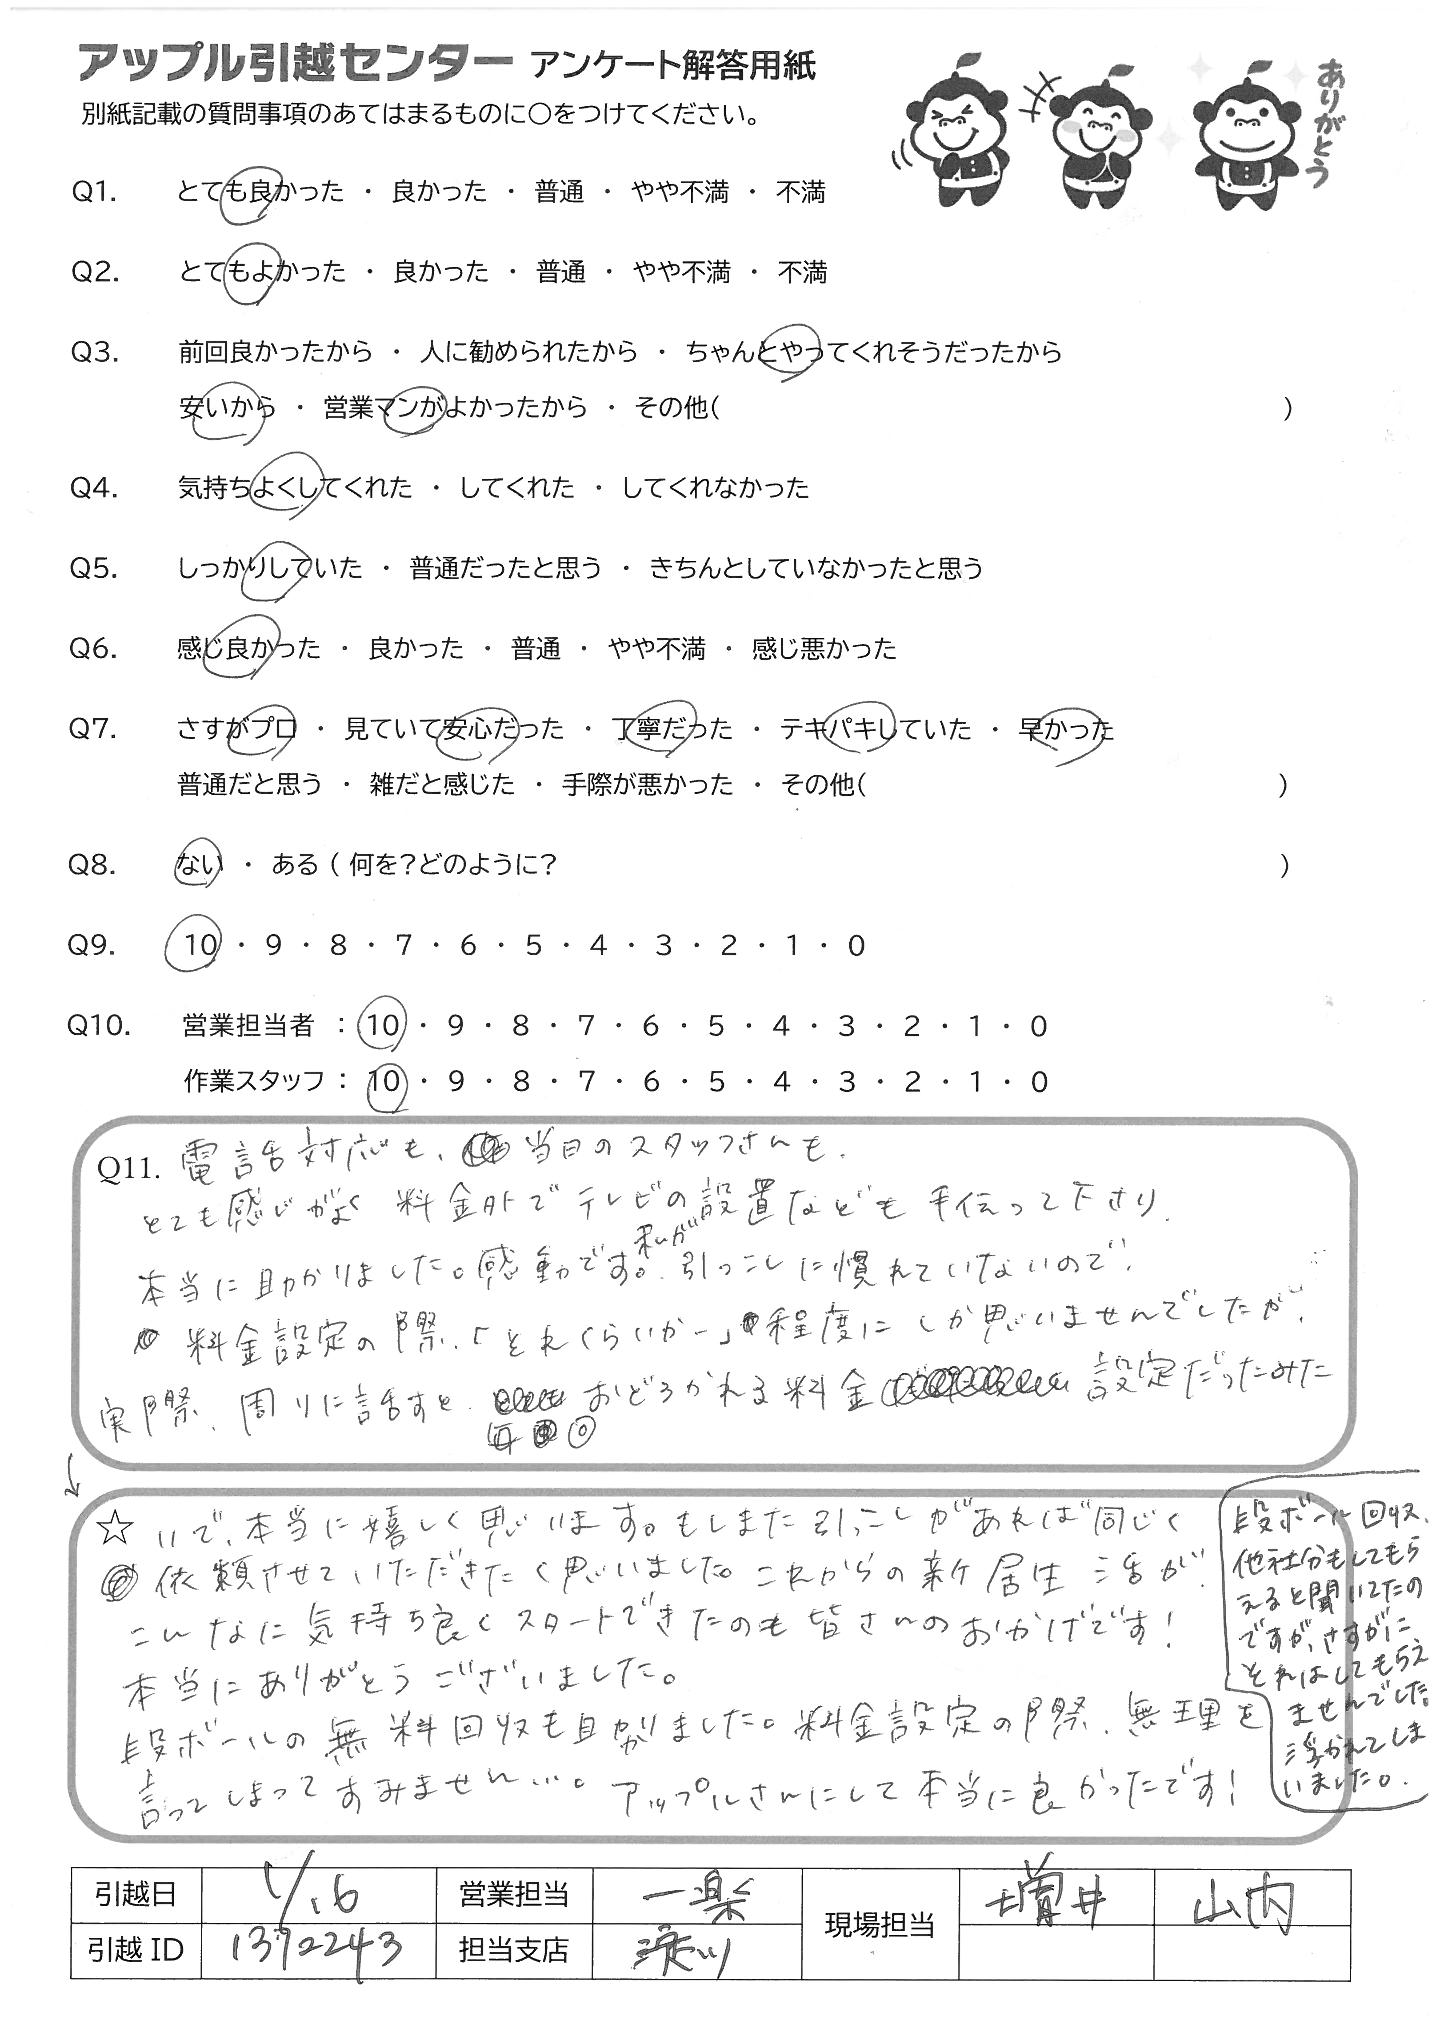 アップル引越センター アンケート解答用紙
ありがとう
別紙記載の質問事項のあてはまるものに〇をつけてください。
Q1. とても良かった ・ 良かった ・ 普通 ・ やや不満 ・ 不満
Q2. とてもよかった ・ 良かった ・ 普通 ・ やや不満 ・ 不満
Q3. 前回良かったから ・ 人に勧められたから ・ ちゃんとやってくれそうだったから
安いから ・ 営業マンがよかったから ・ その他( )
Q4. 気持ちよくしてくれた ・ してくれた ・ してくれなかった
Q5. しっかりしていた ・ 普通だったと思う ・ きちんとしていなかったと思う
Q6. 感じ良かった ・ 良かった ・ 普通 ・ やや不満 ・ 感じ悪かった
Q7. さすがプロ ・ 見ていて安心だった ・ 丁寧だった ・ テキパキしていた ・ 早かった
普通だと思う ・ 雑だと感じた ・ 手際が悪かった ・ その他( )
Q8. ない ・ ある ( 何を?どのように? )
Q9. 10 ・ 9 ・ 8 ・ 7 ・ 6 ・ 5 ・ 4 ・ 3 ・ 2 ・ 1 ・ 0
Q10. 営業担当者 : 10 ・ 9 ・ 8 ・ 7 ・ 6 ・ 5 ・ 4 ・ 3 ・ 2 ・ 1 ・ 0
作業スタッフ : 10 ・ 9 ・ 8 ・ 7 ・ 6 ・ 5 ・ 4 ・ 3 ・ 2 ・ 1 ・ 0
Q11. 電話対応も、当日のスタッフさんも、
とても感じがよく 料金外でテレビの設置なども手伝って下さり、
本当に助かりました。感動です。私が引っこしに慣れていないので、
料金設定の際、「とれくらいかー」程度にしか思いませんでしたが、
実際、周りに話すと、おどろかれる料金設定だったみた
☆ いで、本当に嬉しく思います。もしまた引っこしがあれば同じく
依頼させていただきたく思いました。これからの新居生活が、
こんなに気持ち良くスタートできたのも皆さんのおかげです!
本当にありがとうございました。
段ボールの無料回収も助かりました。料金設定の際、無理を
言ってしまってすみません…。アップルさんにして本当に良かったです!
段ボール回収、
他社分もしてもら
えると聞いてたの
ですが、さすがに
それはしてもらえ
ませんでした。
浮かれてしま
いました。
引越日 1/16 営業担当 一楽 現場担当 増井 山内
引越 ID 1372243 担当支店 淀川